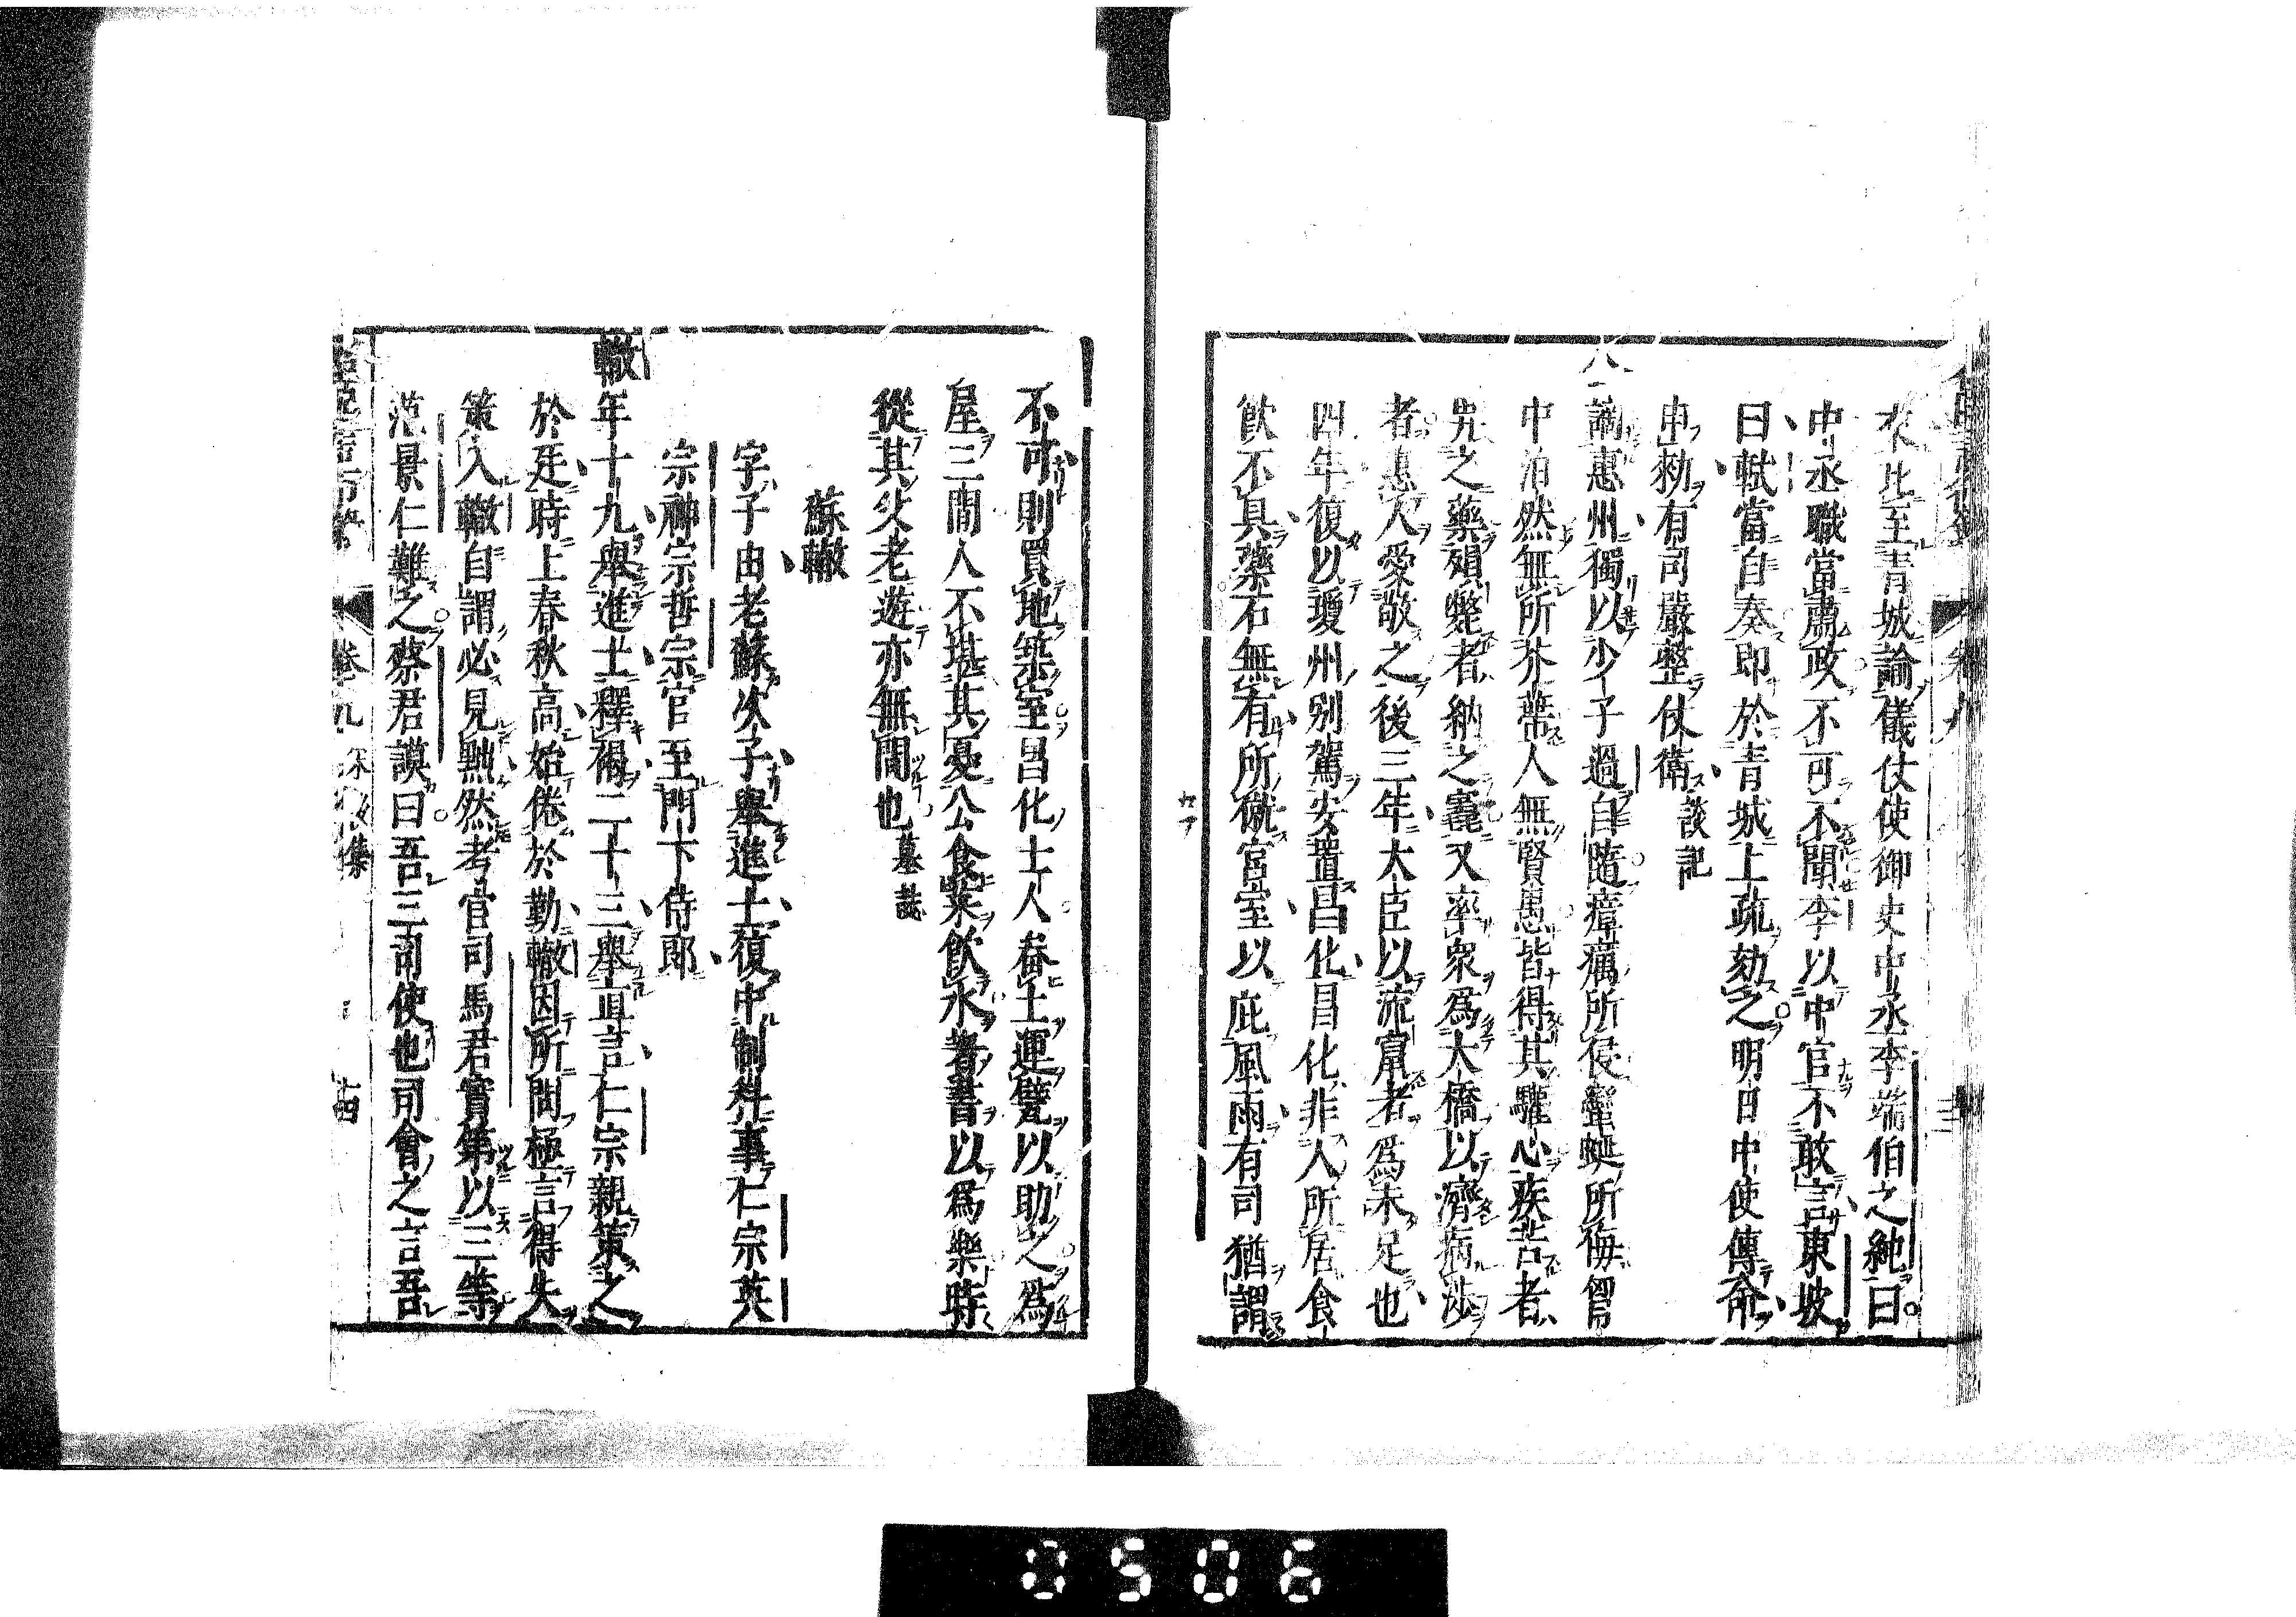 衣比至青城論儀仗使御史中丞李端伯之純曰
中丞職當肅政不可不聞李以中官不敢言東坡
曰軾當自奏即於青城上疏劾之明日中使傳命
申勑有司嚴整仗衛談記
八謫惠州獨以少子過自隨瘴癘所侵蠻蜒所侮胷
中泊然無所芥蔕人無賢愚皆得其驩心疾苦者
畀之藥殞斃者納之竁又率衆爲大橋以濟病涉
者惠人愛敬之後三年大臣以流竄者爲未足也
四年復以瓊州別駕安置昌化昌化非人所居食
飲不具藥石無有所僦官室以庇風雨有司猶謂
不可則買地築室昌化士人畚土運甓以助之爲
屋三間人不堪其憂公食菜飲水著書以爲樂時
從其父老遊亦無間也墓誌
蘇轍
字子由老蘇次子舉進士復中制科事仁宗英
宗神宗哲宗官至門下侍郎
轍年十九舉進士釋褐二十三舉直言仁宗親策之
於廷時上春秋高始倦於勤轍因所問極言得失
策入轍自謂必見黜然考官司馬君實第以三等
范景仁難之蔡君謨曰吾三司使也司會之言吾
卷九
十四
0506